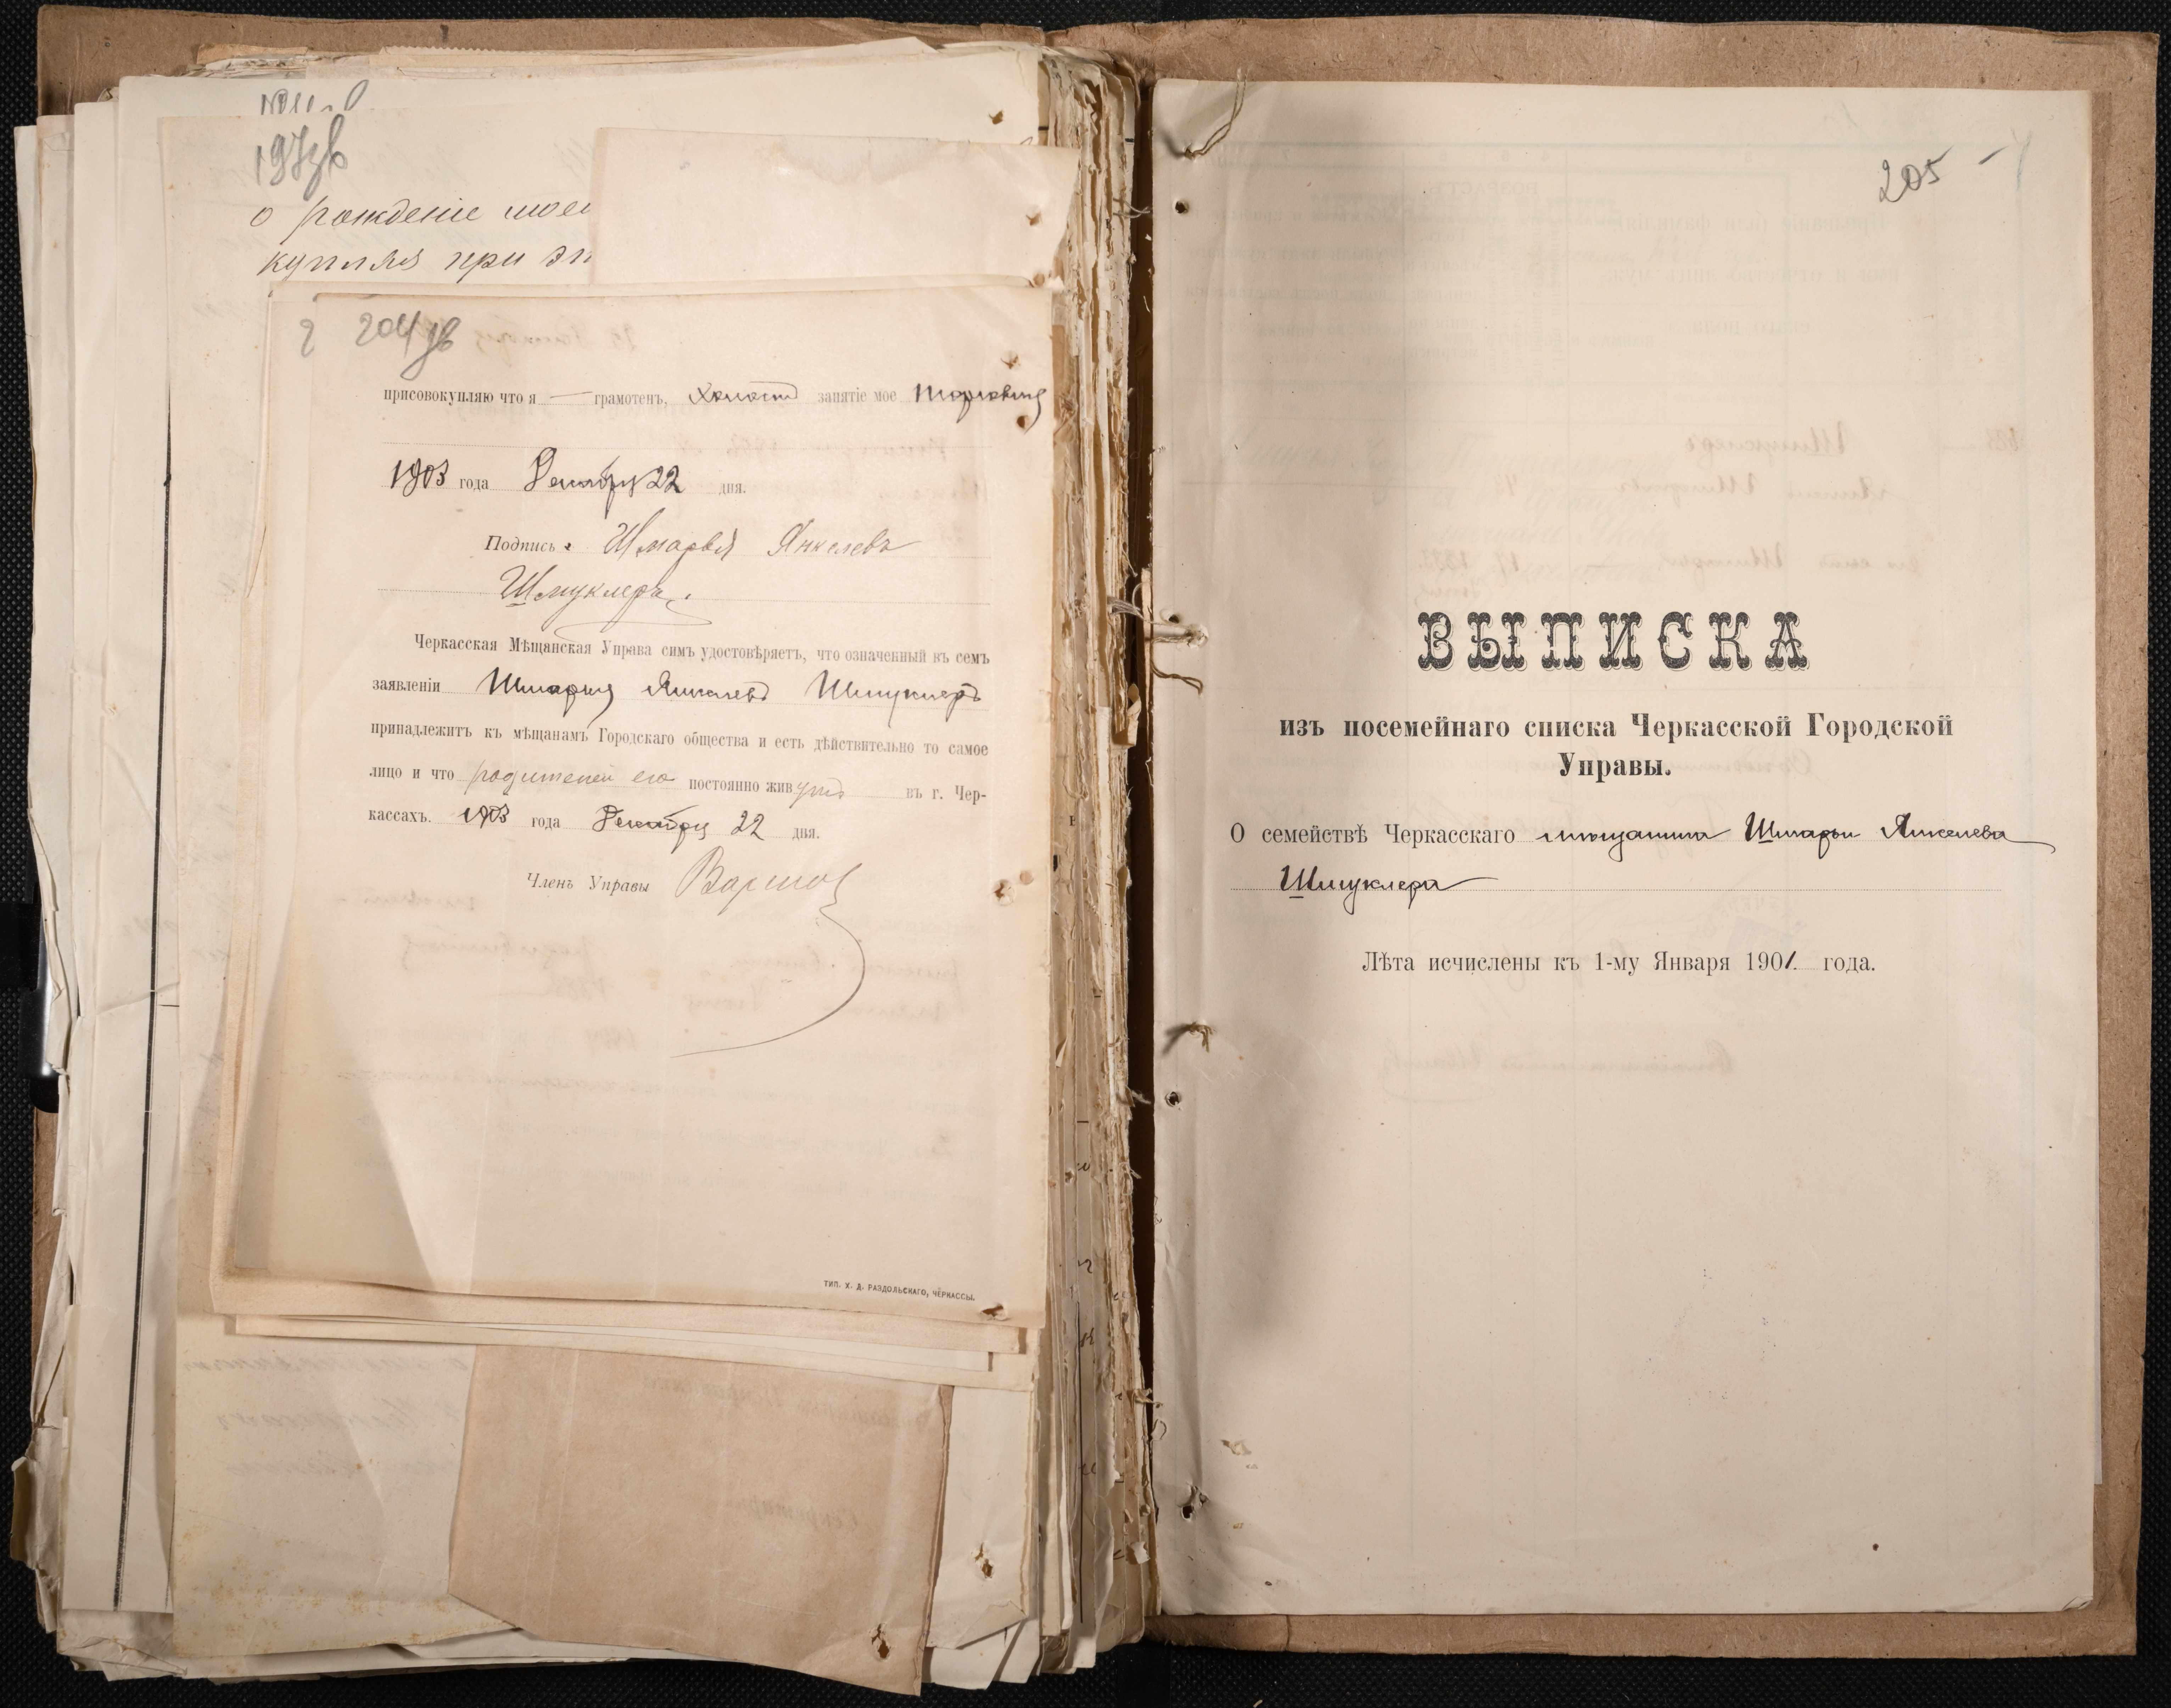 197зв
о рожденіе моем
купляя при эт
2 204зв
присовокупляю что я — грамотенъ, холостъ занятіе мое торговля
1903 года Декабря 22 дня.
Подпись: Шмарья Янкелевъ
Шмуклеръ.
Черкасская Мѣщанская Управа симъ удостовѣряетъ, что означенный въ семъ
заявленіи Шмарья Янкелевъ Шмуклеръ
принадлежитъ къ мѣщанамъ Городскаго общества и есть дѣйствительно то самое
лицо и что родители его постоянно живутъ въ г. Чер-
кассахъ. 1903 года Декабря 22 дня.
Членъ Управы
ТИП. Х. Д. РАЗДОЛЬСКАГО, ЧЕРКАССЫ.
205
ВЫПИСКА
изъ посемейнаго списка Черкасской Городской
Управы.
О семействѣ Черкасскаго мѣщанина Шмарьи Янкелева
Шмуклера
Лѣта исчислены къ 1-му Января 1901. года.